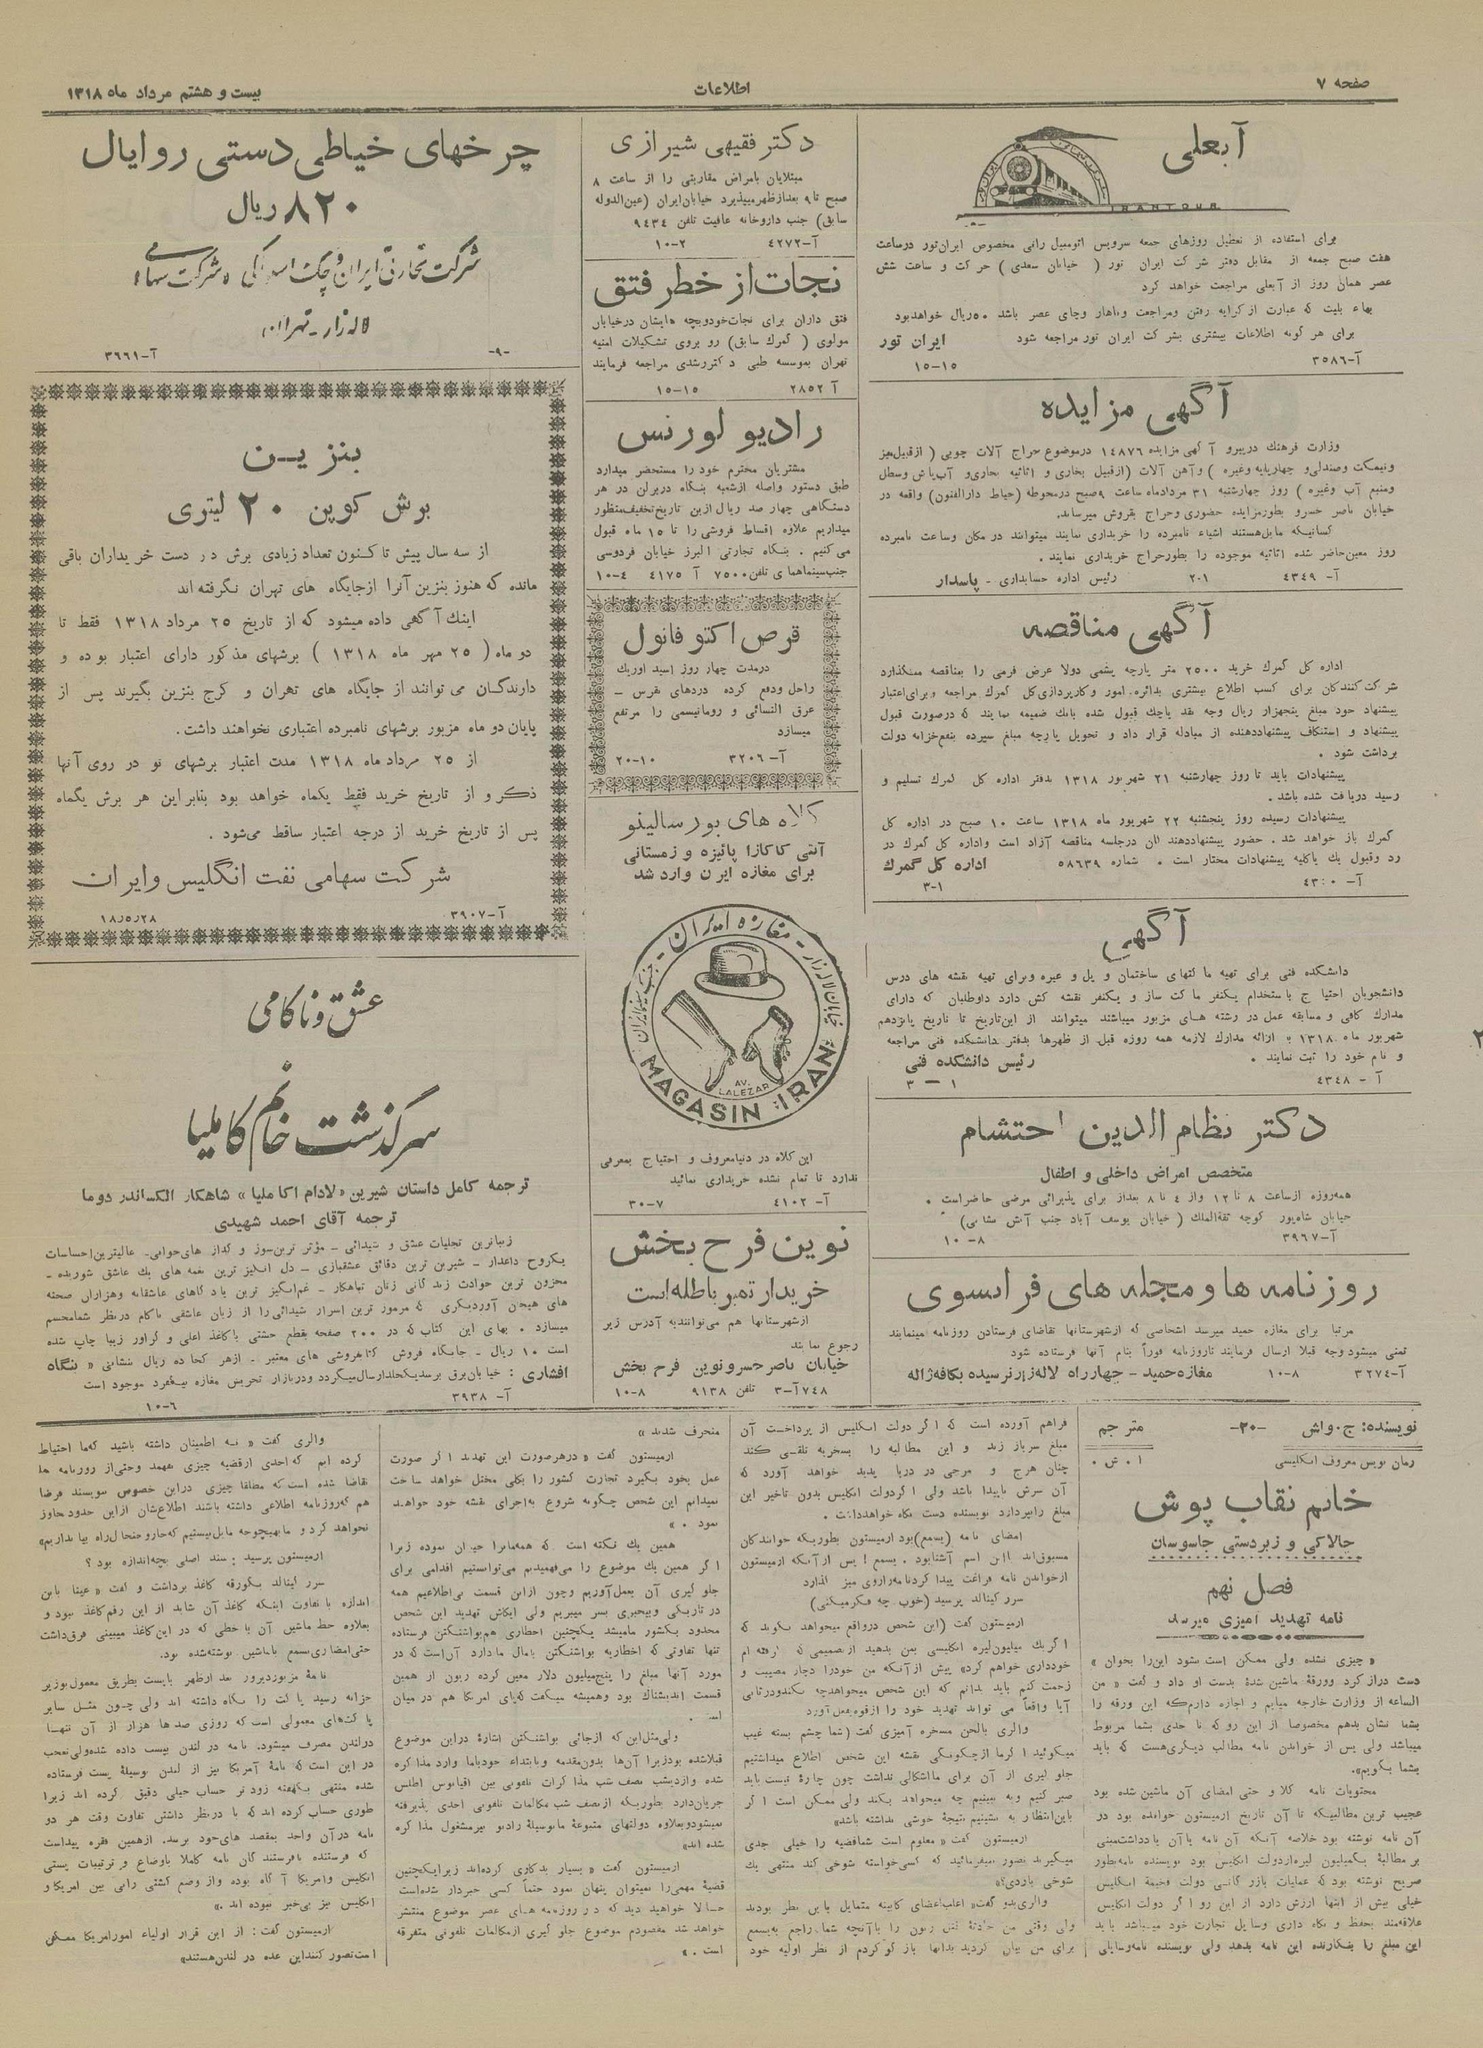 صفحه ۷
اطلاعات
بیست و هشتم مرداد ماه ۱۳۱۸
آبعلی
IRANTOUR
برای استفاده از تعطیل روزهای جمعه سرویس اتومبیل رانی مخصوص ایران‌تور در ساعت
هفت صبح جمعه از مقابل دفتر شرکت ایران تور ( خیابان سعدی ) حرکت و ساعت شش
عصر همان روز از آبعلی مراجعت خواهد کرد
بهاء بلیت که عبارت از کرایه رفتن ومراجعت وناهار وچای عصر باشد ۵۰ ریال خواهدبود
برای هر گونه اطلاعات بیشتری بشرکت ایران تور مراجعه شود
ایران تور
آ-۳۵۸۶ ۱۵-۱۵
آگهی مزایده
وزارت فرهنك درپیرو آگهی مزایده ۱۴۸۷۶ درموضوع حراج آلات چوبی ( ازقبیل میز
ونیمکت وصندلی و چهارپایه وغیره ) وآهن آلات (ازقبیل بخاری و اثاثیه بخاری و آب پاش وسطل
ومنبع آب وغیره ) روز چهارشنبه ۳۱ مردادماه ساعت ۹ صبح درمحوطه (حیاط دارالفنون) واقعه در
خیابان ناصر خسرو بطورمزایده حضوری وحراج بفروش میرساند.
کسانیکه مایل هستند اشیاء نامبرده را خریداری نمایند میتوانند در مکان وساعت نامبرده
روز معین حاضر شده اثاثیه موجوده را بطورحراج خریداری نمایند .
آ- ۴۳۴۹ ۲-۱ رئیس اداره حسابداری - پاسدار
آگهی مناقصه
اداره کل گمرك خرید ۲۵۰۰ متر پارچه پشمی دولا عرض فرمی را بمناقصه میگذارد
شرکت کنندگان برای کسب اطلاع بیشتری بدائره امور وکارپردازی کل گمرك مراجعه و برای اعتبار
پیشنهاد خود مبلغ پنجهزار ریال وجه نقد یاچك قبول شده بانك ضمیمه نمایند که درصورت قبول
پیشنهاد و استنکاف پیشنهاددهنده از مبادله قرار داد و تحویل پارچه مبلغ سپرده بنفع خزانه دولت
برداشت شود .
پیشنهادات باید تا روز چهارشنبه ۲۱ شهریور ۱۳۱۸ بدفتر اداره کل گمرك تسلیم و
رسید دریافت شده باشد .
پیشنهادات رسیده روز پنجشنبه ۲۲ شهریور ماه ۱۳۱۸ ساعت ۱۰ صبح در اداره کل
گمرك باز خواهد شد . حضور پیشنهاددهندگان درجلسه مناقصه آزاد است واداره کل گمرك در
رد وقبول یك یاکلیه پیشنهادات مختار است . شماره ۵۸۶۳۹ اداره کل گمرك
۳-۱
آگهی
دانشکده فنی برای تهیه ماکتهای ساختمان و پل و غیره وبرای تهیه نقشه های درس
دانشجویان احتیاج باستخدام یکنفر ماکت ساز و یکنفر نقشه کش دارد داوطلبان که دارای
مدارك کافی و سابقه عمل در رشته های مزبور میباشند میتوانند از این تاریخ تا تاریخ پانزدهم
شهریور ماه ۱۳۱۸ با ارائه مدارك لازمه همه روزه قبل از ظهرها بدفتر دانشکده فنی مراجعه
و نام خود را ثبت نمایند .
رئیس دانشکده فنی
آ - ۴۳۴۸ ۳-۱
دکتر نظام الدین احتشام
متخصص امراض داخلی و اطفال
همه روزه ازساعت ۸ تا ۱۲ واز ۴ تا ۸ بعداز برای پذیرائی مرضی حاضراست .
خیابان شاهپور کوچه ثقةالملك ( خیابان یوسف آباد جنب آتش نشانی)
آ-۳۹۶۷ ۱۰-۸
روزنامه ها و مجله های فرانسوی
مرتبا برای مغازه حمید میرسد اشخاصی که ازشهرستانها تقاضای فرستادن روزنامه مینمایند
تمنی میشود وجه قبلا ارسال فرمایند تاروزنامه فوراً بنام آنها فرستاده شود
آ-۳۲۷۴ ۱۰-۸ مغازه حمید - چهارراه لاله زار نرسیده بکافه ژاله
دکتر فقیهی شیرازی
مبتلایان بامراض مقاربتی را از ساعت ۸
صبح تا ۹ بعدازظهر میپذیرد خیابان ایران (عین الدوله
سابق) جنب داروخانه عافیت تلفن ۹۴۳۴
آ-۴۲۷۲ ۱۰-۲
نجات از خطر فتق
فتق داران برای نجات خود وبچه هایشان درخیابان
مولوی ( گمرك سابق) رو بروی تشکیلات امنیه
تهران بموسسه طبی دکتر رشدی مراجعه فرمایند
آ ۲۸۵۲ ۱۵-۱۵
رادیو لورنس
مشتریان محترم خود را مستحضر میدارد
طبق دستور واصله ازشعبه بنگاه دربرلن در هر
دستگاهی چهار صد ریال ازین تاریخ تخفیف منظور
میداریم علاوه اقساط فروشی را تا ۱۵ ماه قبول
می کنیم . بنگاه تجارتی البرز خیابان فردوسی
جنب سینماهمای تلفن ۷۵۰۰ آ ۴۱۷۵ ۱۰-۴
قرص اکتو فانول
درمدت چهار روز اسید اوریك
راحل ودفع کرده دردهای نقرس -
عرق النسائی و روماتیسمی را مرتفع
میسازد
آ-۳۲۰۶ ۲۰-۱۰
کلاه های بورسالینو
آنتی کاکازا پائیزه و زمستانی
برای مغازه ایران وارد شد
مغازه ایران - خیابان لاله زار - جنب سینما ایران
AV. LALEZAR
MAGASIN IRAN
این کلاه در دنیا معروف و احتیاج بمعرفی
ندارد تا تمام نشده خریداری نمائید
آ- ۴۱۰۲ ۳۰-۷
نوین فرح بخش
خریدار تمبر باطله است
ازشهرستانها هم می توانند به آدرس زیر
رجوع نمایند
خیابان ناصر خسرو نوین فرح بخش
۷۴۸ آ-۳ تلفن ۹۱۳۸ ۱۰-۸
چرخهای خیاطی دستی روایال
۸۲۰ ریال
شرکت تجارتی ایران و چك اسلواکی «شرکت سهامی»
لاله زار - تهران
آ-۳۹۶۱ -۹-
بنزین
برش کوپن ۲۰ لیتری
از سه سال پیش تاکنون تعداد زیادی برش در دست خریداران باقی
مانده که هنوز بنزین آنرا ازجایگاه های تهران نگرفته اند
اینك آگهی داده میشود که از تاریخ ۲۵ مرداد ۱۳۱۸ فقط تا
دو ماه ( ۲۵ مهر ماه ۱۳۱۸ ) برشهای مذکور دارای اعتبار بوده و
دارندگان می توانند از جایگاه های تهران و کرج بنزین بگیرند پس از
پایان دو ماه مزبور برشهای نامبرده اعتباری نخواهند داشت.
از ۲۵ مرداد ماه ۱۳۱۸ مدت اعتبار برشهای نو در روی آنها
ذکر و از تاریخ خرید فقط یکماه خواهد بود بنابر این هر برش یکماه
پس از تاریخ خرید از درجه اعتبار ساقط می‌شود .
شرکت سهامی نفت انگلیس و ایران
آ-۳۹۰۷ ۱۸ر۵ر۲۸
عشق و ناکامی
سرگذشت خانم کاملیا
ترجمه کامل داستان شیرین «لادام اکاملیا» شاهکار الکساندر دوما
ترجمه آقای احمد شهیدی
زیباترین تجلیات عشق و شیدائی - مؤثر ترین سوز و گداز های جوانی- عالیترین احساسات
یکروح داغدار - شیرین ترین دقائق عشقبازی - دل انگیز ترین نغمه های یك عاشق شوریده -
محزون ترین حوادث زندگانی زنان تباهکار - غم انگیز ترین یادگاهای عاشقانه وهزاران صحنه
میسازد . بهای این کتاب که در ۲۰۰ صفحه بقطع خشتی باکاغذ اعلی و گراور زیبا چاپ شده
است ۱۰ ریال - جایگاه فروش کتابفروشی های معتبر
آ- ۳۹۳۸ ۱۰-۶
نویسنده: ج. واش -۲۰- مترجم
رمان نویس معروف انگلیسی ا . ش .
خانم نقاب پوش
چالاکی و زبردستی جاسوسان
فصل نهم
نامه تهدید آمیزی میرسد
« چیزی نشده ولی ممکن است بشود این را بخوان »
دست دراز کرد وورقهٔ ماشین شدهٔ بدست او داد و گفت « من
الساعه از وزارت خارجه میایم و اجازه دارم که این ورقه را
بشما نشان بدهم مخصوصا از این رو که تا حدی بشما مربوط
میباشد ولی پس از خواندن نامه مطالب دیگری هست که باید
بشما بگویم».
محتویات نامه کلا و حتی امضای آن ماشین شده بود
عجیب ترین مطالبیکه تا آن تاریخ ارمیستون خوانده بود در
صریح نوشته بود که عملیات بازرگانی دولت فخیمهٔ انگلیس
خیلی بیش از اینها ارزش دارد از این رو اگر دولت انگلیس
علاقه‌مند بحفظ و نگاه داری وسایل تجارت خود میباشد باید
این مبلغ را بنگارنده این نامه بدهد ولی نویسنده نامه وسایلی
فراهم آورده است که اگر دولت انگلیس از پرداخت آن
مبلغ سرباز زند و این مطالبه را بسخریه تلقی کند
چنان هرج و مرجی در دریا پدید خواهد آورد که
آن سرش ناپیدا باشد ولی اگر دولت انگلیس بدون تاخیر این
مبلغ رابپردازد نویسنده دست نگاه خواهدداشت .
امضای نامه (یسمع) بود ارمیستون بطوریکه خوانندگان
مسبوق‌اند بااین اسم آشنا بود . یسمع! پس ازآنکه ارمیستون
ازخواندن نامه فراغت پیدا کرد نامه را روی میز گذارد
سررگینالد پرسید (خوب چه فکر میکنی)
ارمیستون گفت (این شخص درواقع میخواهد بگوید که
اگر یك میلیون لیره انگلیسی بمن بدهید ازتصمیمی که گرفته ام
خودداری خواهم کرد» پیش ازآنکه من خود را دچار مصیبت و
زحمت کنم باید بدانم که این شخص میخواهد چه بکند و درثانی
آیا واقعاً می تواند تهدید خود را ازقوه بفعل آورد
والری بالحن مسخره آمیزی گفت (شما چشم بسته غیب
میگوئید اگر ما ازچگونگی نقشه این شخص اطلاع میداشتیم
جلو گیری از آن برای ما اشکالی نداشت چون چارهٔ نیست باید
صبر کنیم و به بینیم چه میخواهد بکند ولی ممکن است اگر
باین انتظار به نشینیم نتیجهٔ خوشی نداشته باشد»
ارمیستون گفت « معلوم است شما قضیه را خیلی جدی
میگیرید تصور نمیفرمائید که کسی خواسته شوخی کند منتهی یك
شوخی باردی؟»
برای من بیان کردید بدانها باز گو کردم از نظر اولیه خود
منحرف شدند »
ارمیستون گفت « درهرصورت این تهدید اگر صورت
عمل بخود بگیرد تجارت کشور را بکلی مختل خواهد ساخت
نمیدانم این شخص چگونه شروع به اجرای نقشه خود خواهد
نمود . »
اگر همین یك موضوع را میفهمیدیم می‌توانستیم اقدامی برای
جلو گیری آن بعمل آوریم وچون ازاین قسمت بی اطلاعیم همه
در تاریکی و بیخبری بسر میبریم ولی ایکاش تهدید این شخص
محدود بکشور ما میشد یکچنین اخطاری هم بواشنگتن فرستاده
تنها تفاوتی که اخطاریه بواشنگتن بامال ما دارد آن است که در
مورد آنها مبلغ را پنج میلیون دلار معین کرده
ولی مثل این که ازجائی بواشنگتن اشارهٔ دراین موضوع
شده اند»
ارمیستون گفت « بسیار بد کاری کرده اند زیرا یکچنین
قضیهٔ مهمی را نمیتوان پنهان نمود حتماً کسی خبردار شده است
حالا خواهید دید که در روزنامه های عصر موضوع منتشر
خواهد شد مقصودم موضوع جلو گیری ازمکالمات تلفونی متفرقه
است . »
والری گفت « نه اطمینان داشته باشید که ما احتیاط
کرده ایم که احدی از قضیه چیزی نفهمد وحتی از روزنامه ها
تقاضا شده است که مطلقا چیزی دراین خصوص ننویسند فرضا
هم که روزنامه اطلاعی داشته باشند اطلاعشان ازاین حدود تجاوز
نخواهد کرد و ما بهیچوجه مایل نیستیم که جار و جنجال راه بیاندازیم»
ارمیستون پرسید : سند اصلی بچه اندازه بود ؟
سرر گینالد یکورقه کاغذ برداشت و گفت « عینا باین
اندازه با تفاوت اینکه کاغذ آن شاید از این رقم کاغذ نبود و
بعلاوه خط ماشین آن با خطی که در این کاغذ میبینی فرق داشت
حتی امضای یسمع باماشین نوشته شده بود.
خزانه رسید پاکت را نگاه داشته اند ولی چون مثل سایر
پاکت‌های معمولی است که روزی صدها هزار از آن تنها
درلندن مصرف میشود. نامه در لندن بپست داده شده ولی تعجب
در این است که نامهٔ آمریکا نیز از لندن بوسیلهٔ پست فرستاده
شده منتهی یکهفته زود تر حساب خیلی دقیق کرده اند زیرا
طوری حساب کرده اند که با درنظر داشتن تفاوت وقت هر دو
نامه درآن واحد بمقصد های خود برسد. ازهمین فقره پیداست
که فرستنده یا فرستندگان نامه کاملا باوضاع و ترتیبات پستی
انگلیس وامریکا آگاه بوده واز وضع کشتی رانی بین امریکا و
انگلیس نیز بی خبر نبوده اند .»
ارمیستون گفت: از این قرار اولیاء امور امریکا ممکن
است تصور کنند این عده در لندن هستند»